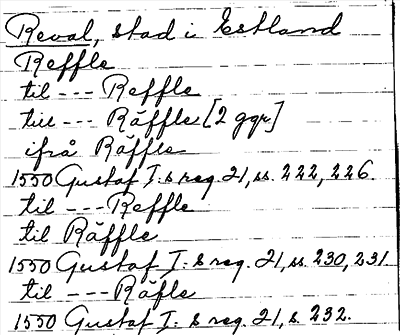 Reval, stad i Estland
Reffle
til --- Reffle
till --- Räffle [2 ggr]
ifrå Räffle
1550 Gustaf I:s reg. 21, ss. 222, 226.
til --- Reffle
til Räffle
1550 Gustaf I:s reg. 21, ss. 230, 231
til --- Räfle
1550 Gustaf I:s reg. 21, s. 232.